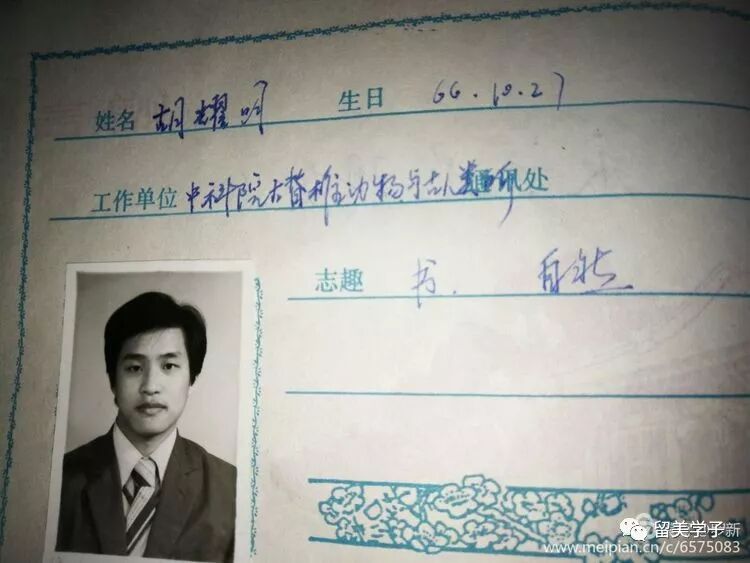 姓名 胡耀明 生日 66.10.27
工作单位 中科院古脊椎动物与古人类 处
志趣 书. 自然
留美学子
新
www.meipian.cn/c/6575083